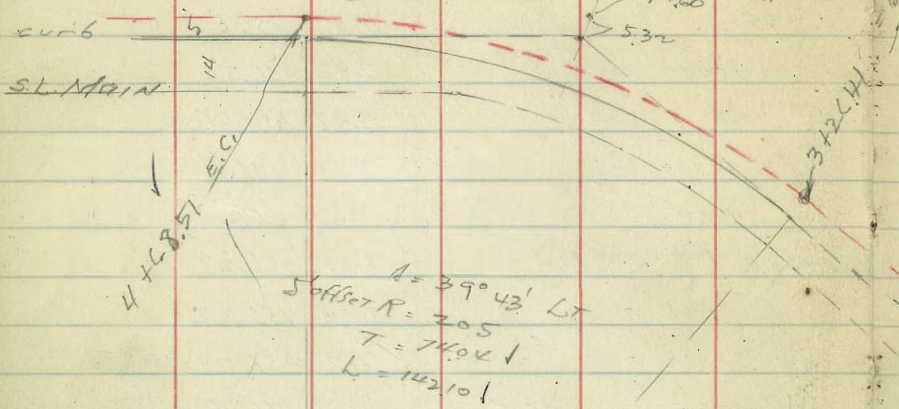 curb
5
14
S.L. MAIN
5.32
E.C.
4+68.51
Δ = 39° 43' LT
5' offset R = 205
T = 74.04
L = 142.10